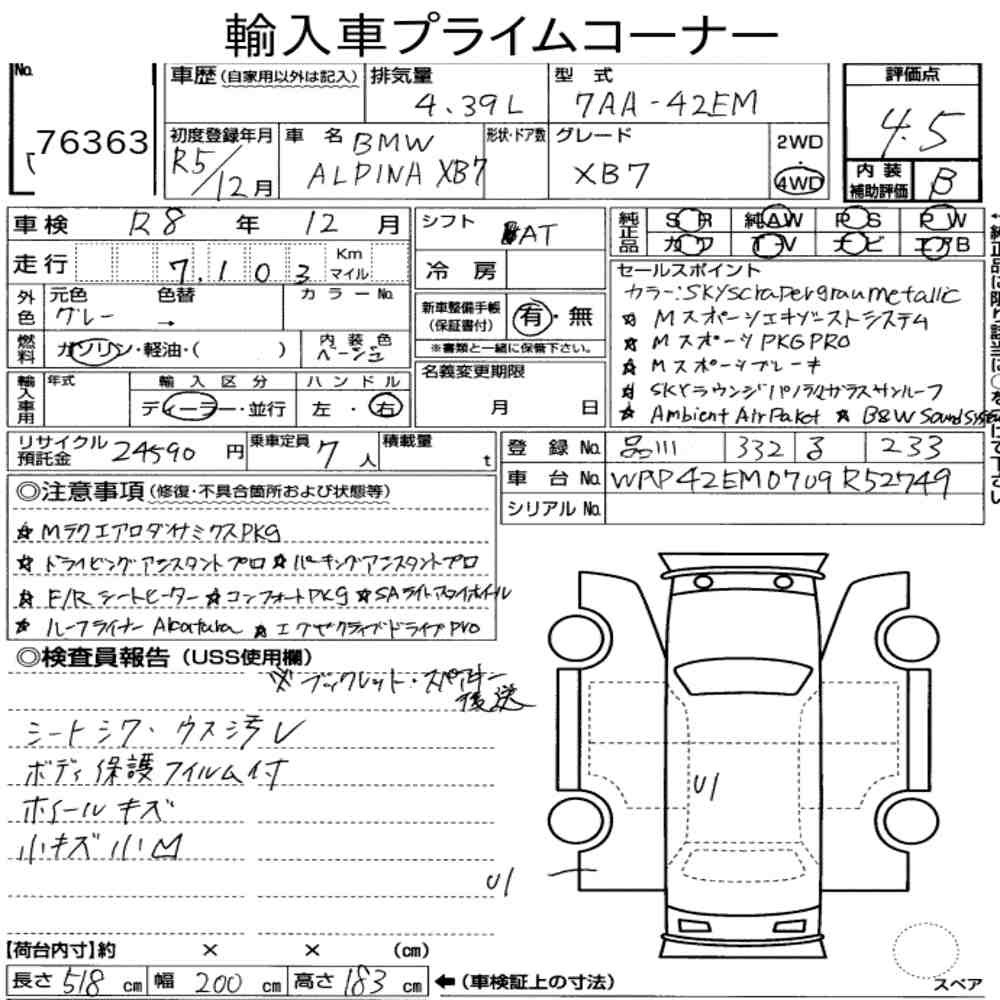 輸入車プライムコーナー
No. 76363
車歴 (自家用以外は記入)
排気量 4.39L
型式 7AA-42EM
評価点 4.5
初度登録年月 R5/12月
車名 BMW ALPINA XB7
形状・ドア数
グレード XB7
2WD・4WD
内装補助評価 B
車検 R8年 12月
シフト AT
純正品 SR 純AW PS PW
カワ T-V ナビ エアB
走行 7,103 Km マイル
冷房
セールスポイント
カラー:Skyscrapergraumetallic
外色 元色 グレー 色替 → カラーNo.
新車整備手帳(保証書付) 有・無
※書類と一緒に保管下さい。
☆ Mスポーツエキゾーストシステム
☆ MスポーツPKGPRO
燃料 ガソリン・軽油・( )
内装色 ベージュ
☆ Mスポーツブレーキ
名義変更期限 月 日
☆ SKYラウンジパノラマガラスサンルーフ
輸入車用 年式 輸入区分 ディーラー・並行 ハンドル 左・右
☆ Ambient Air Paket ☆ B&W Sound System
リサイクル預託金 24590円
乗車定員 7人
積載量 t
登録No. 品川 332 る 233
車台No. WAP42EM0709R52749
シリアルNo.
◎注意事項(修復・不具合箇所および状態等)
☆ MラクエアロダイナミクスPKG
☆ ドライビングアシスタントプロ ☆ パーキングアシスタントプロ
☆ F/Rシートヒーター ☆ コンフォートPKG ☆ SAライトアロイホイール
☆ ルーフライナーAlcantara ☆ エグゼクティブドライブPro
◎検査員報告(USS使用欄)
※ ブックレット・スペアキー後送
シートシワ・ウス汚レ
ボディ保護フィルム付
ホイールキズ
小キズ小凹
U1
U1
【荷台内寸】約 × × (cm)
長さ 518 cm 幅 200 cm 高さ 183 cm ←(車検証上の寸法)
スペア